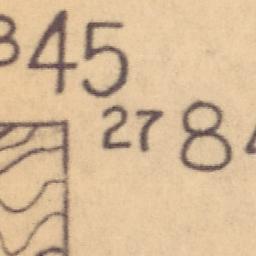 345
27 84